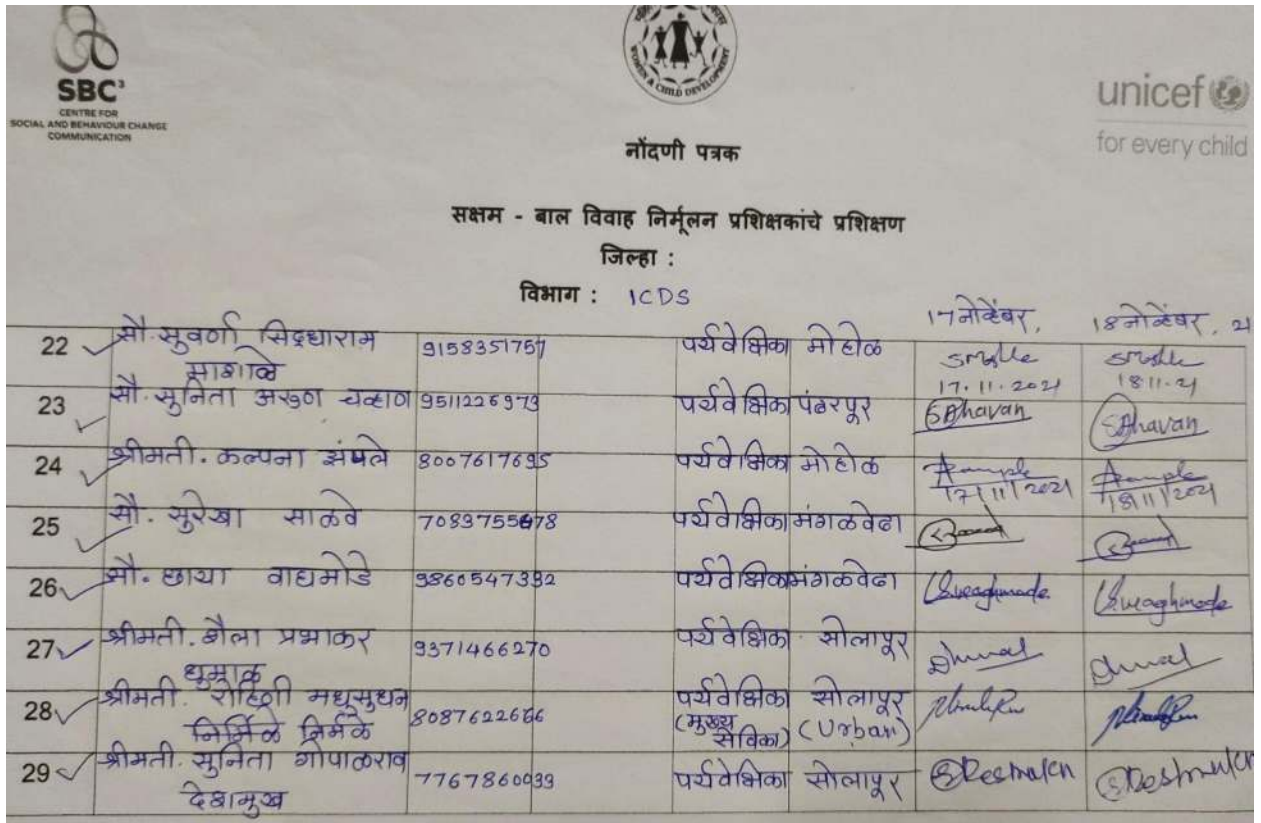 SBC³
CENTRE FOR
SOCIAL AND BEHAVIOUR CHANGE
COMMUNICATION
WOMEN & CHILD DEVELOPMENT
unicef
for every child
नोंदणी पत्रक
सक्षम - बाल विवाह निर्मूलन प्रशिक्षकांचे प्रशिक्षण
जिल्हा :
विभाग : ICDS
17 नोव्हेंबर, 18 नोव्हेंबर, 21
22 सौ. सुवर्णा सिद्धाराम 9158351757 पर्यवेक्षिका मोहोळ
माशाळे 17.11.2021 18.11.21
23 सौ. सुनिता अरुण चव्हाण 9511226973 पर्यवेक्षिका पंढरपूर SChavan SChavan
24 श्रीमती. कल्पना 8007617695 पर्यवेक्षिका मोहोळ
17/11/2021 18/11/2021
25 सौ. सुरेखा साळवे 7083755678 पर्यवेक्षिका मंगळवेढा
26 सौ. छाया वाघमोडे 9860547392 पर्यवेक्षिका मंगळवेढा
27 श्रीमती. शैला प्रभाकर 9371466270 पर्यवेक्षिका सोलापूर
धुमाळ
28 श्रीमती. रोहिणी मधुसुधन 8087622666 पर्यवेक्षिका सोलापूर
निर्मळे (मुख्य सेविका) (Urban)
29 श्रीमती. सुनिता गोपाळराव 7767860039 पर्यवेक्षिका सोलापूर
देशमुख